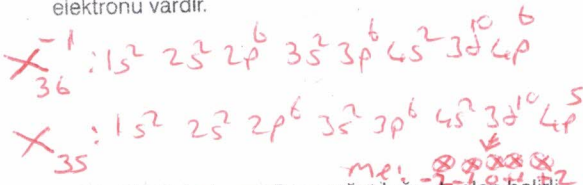 elektronu vardır.
X₃₆⁻¹ : 1s² 2s² 2p⁶ 3s² 3p⁶ 4s² 3d¹⁰ 4p⁶
X₃₅ : 1s² 2s² 2p⁶ 3s² 3p⁶ 4s² 3d¹⁰ 4p⁵
me: ⊗⊗⊗⊗⊗
-2 -1 0 +1 +2